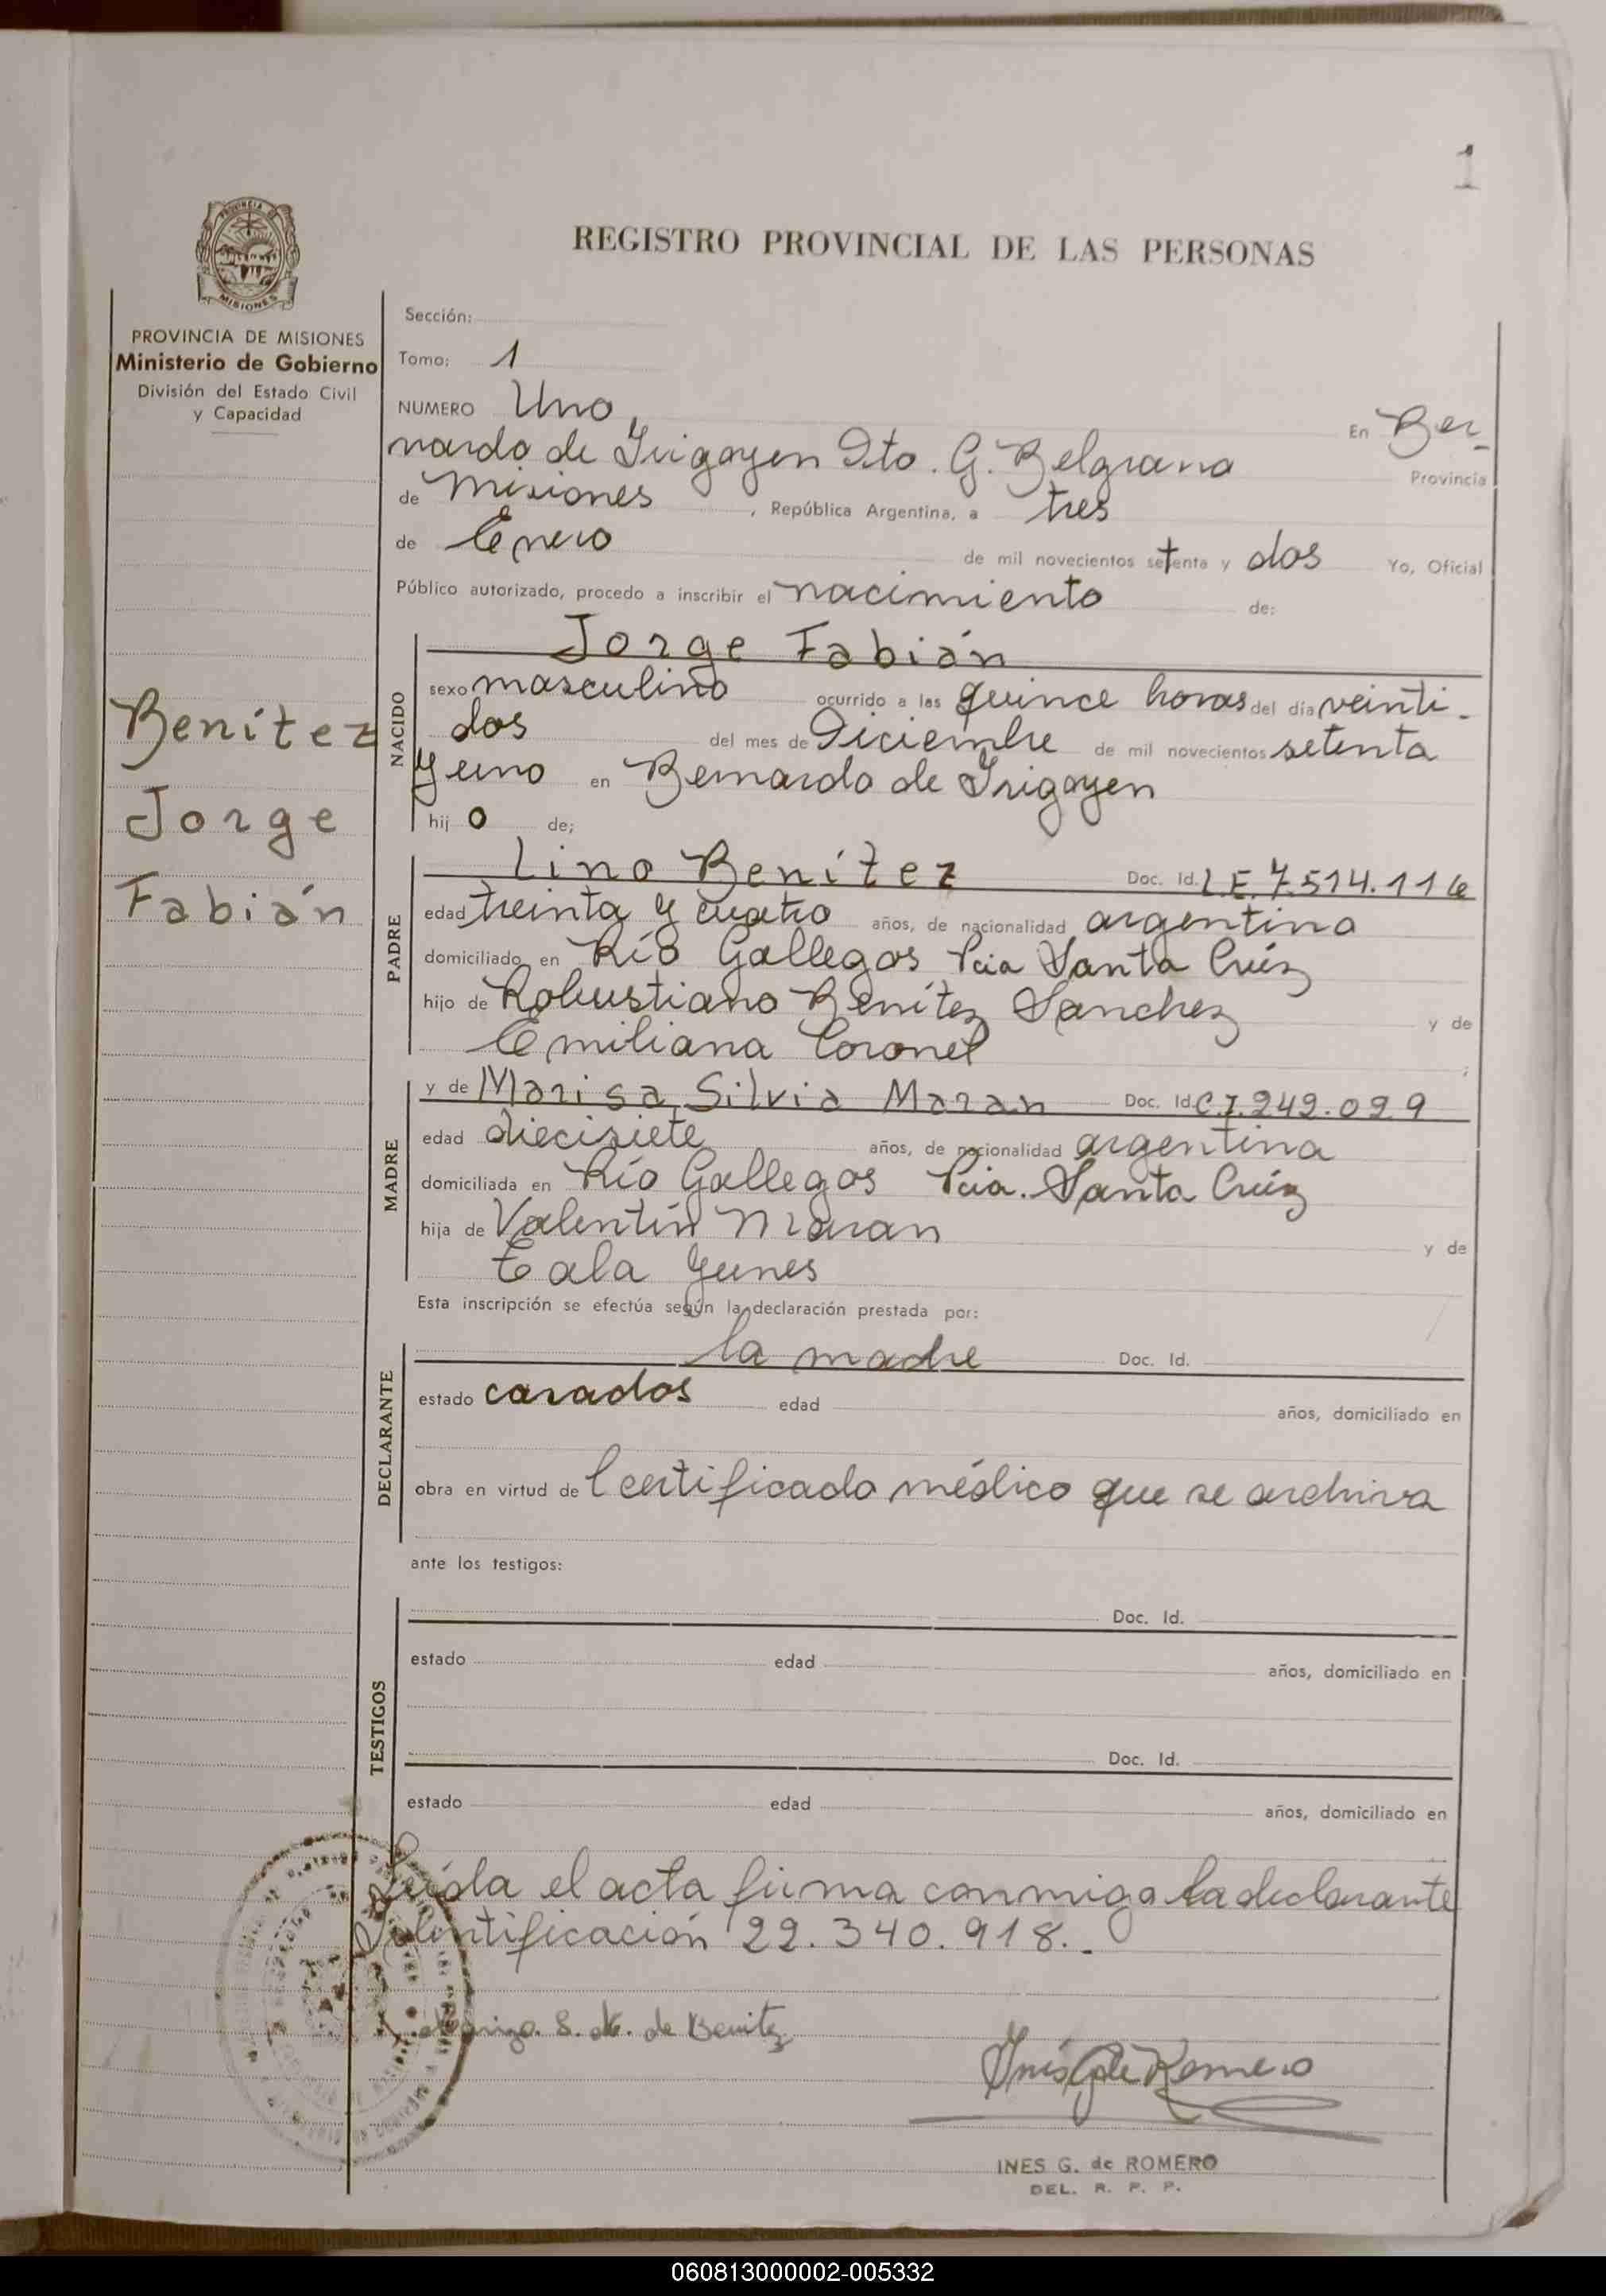 1
REGISTRO PROVINCIAL DE LAS PERSONAS
PROVINCIA DE
MISIONES
PROVINCIA DE MISIONES
Ministerio de Gobierno
División del Estado Civil
y Capacidad
Benítez
Jorge
Fabián
Sección:
Tomo: 1
NUMERO Uno En Ber-
nardo de Irigoyen Dto. G. Belgrano Provincia
de Misiones, República Argentina, a tres
de Enero de mil novecientos setenta y dos Yo, Oficial
Público autorizado, procedo a inscribir el nacimiento de:
NACIDO
Jorge Fabián
sexo masculino ocurrido a las quince horas del día veinti-
dos del mes de Diciembre de mil novecientos setenta
y uno en Bernardo de Irigoyen
hij o de;
PADRE
Lino Benítez Doc. Id. L.E. 7.514.116
edad treinta y cuatro años, de nacionalidad argentina
domiciliado en Río Gallegos Pcia Santa Crúz
hijo de Robustiano Benítez Sanchez y de
Emiliana Coronel ;
MADRE
y de Marisa Silvia Maran Doc. Id. C.I. 242.029
edad diecisiete años, de nacionalidad argentina
domiciliada en Río Gallegos Pcia. Santa Crúz
hija de Valentín Maran y de
Tala Yunes
Esta inscripción se efectúa según la declaración prestada por:
DECLARANTE
la madre Doc. Id.
estado casados edad años, domiciliado en
obra en virtud de Certificado médico que se archiva
ante los testigos:
TESTIGOS
Doc. Id.
estado edad años, domiciliado en
Doc. Id.
estado edad años, domiciliado en
Leída el acta firma conmigo la declarante
Identificación 22.340.918.-
S. M. de Benitez
Inés G de Romero
INES G. de ROMERO
DEL. R. P. P.
060813000002-005332